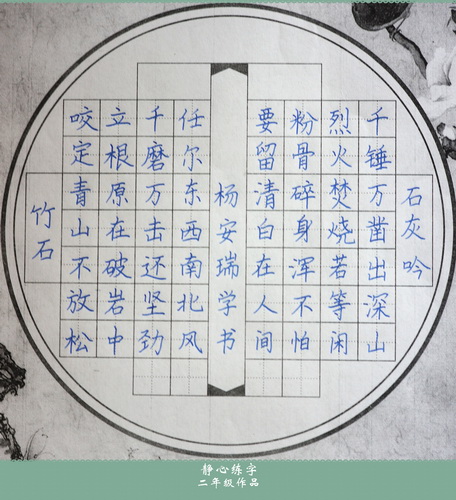 石灰吟
千锤万凿出深山
烈火焚烧若等闲
粉骨碎身浑不怕
要留清白在人间
竹石
咬定青山不放松
立根原在破岩中
千磨万击还坚劲
任尔东西南北风
杨安瑞学书
静心练字
二年级作品